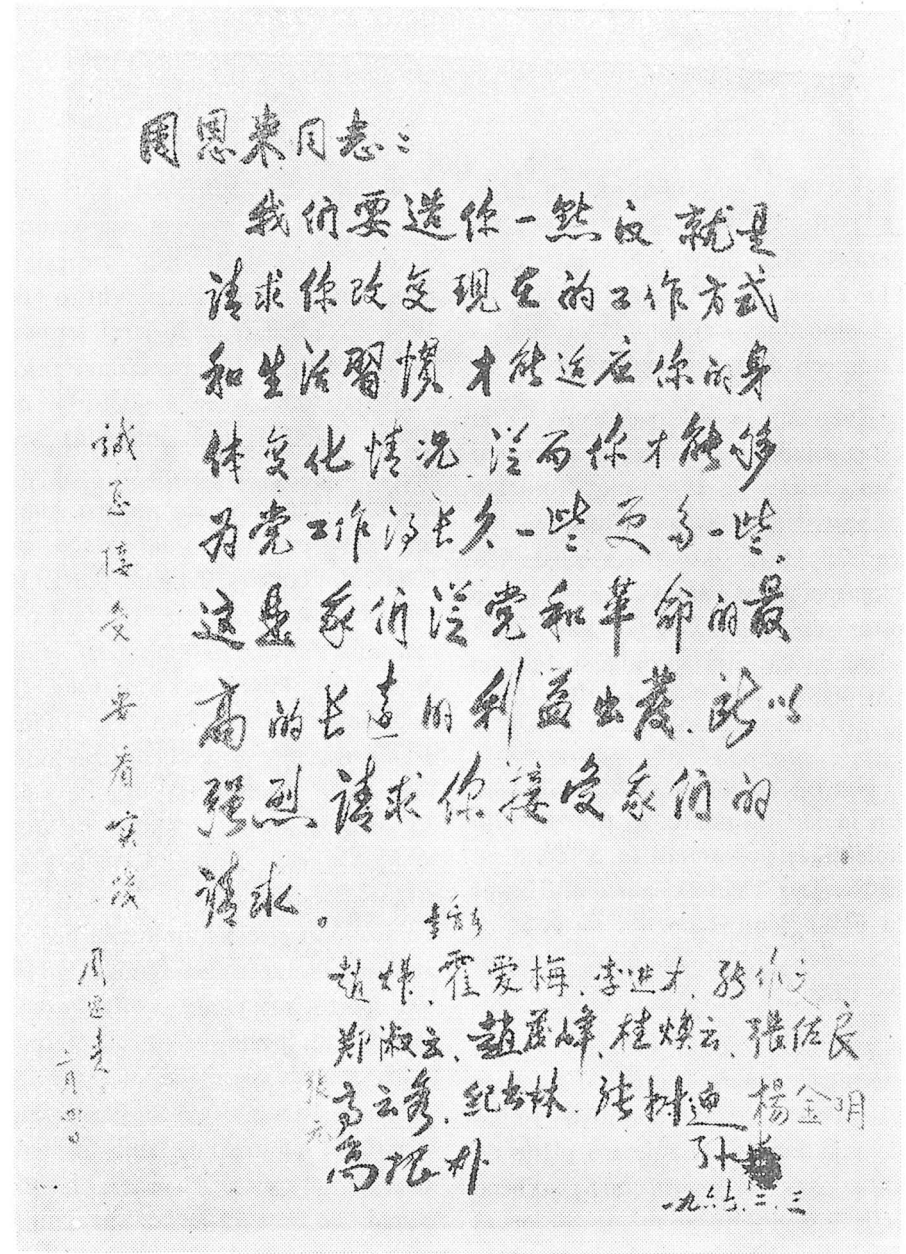 周恩来同志：
我们要造你一点反，就是
请求你改变现在的工作方式
和生活習慣，才能适应你的身
体变化情况，从而你才能够
为党工作得长久一些更多一些。
这是我们从党和革命的最
高的长远的利益出發，所以
强烈请求你接受我们的
请求。
趙煒、霍爱梅、李进才、张作文
郑淑云、趙茂峰、桂焕云、張佐良
高云秀、纪书林、张树迎 楊金明
張元
高振朴
一九六七.二.三
誠恳接受，要看实践
周恩来
二月四日